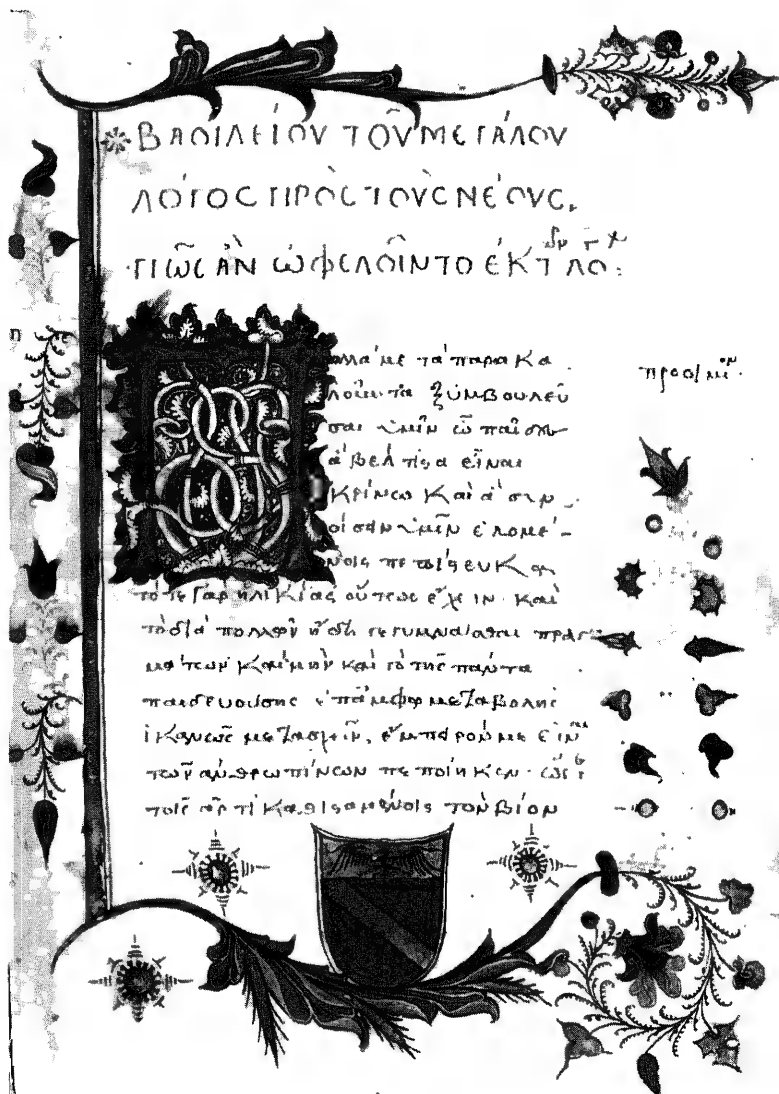 ΒΑΣΙΛΕΙΟΥ ΤΟΥ ΜΕΓΑΛΟΥ
ΛΟΓΟΣ ΠΡΟΣ ΤΟΥΣ ΝΕΟΥΣ.
ΠΩΣ ΑΝ ΩΦΕΛΟΙΝΤΟ ΕΚ ΛΟ:
προοίμιον
ολλά με τὰ παρακα
λοῦντα ξυμβουλεῦ
σαι ὑμῖν ὦ παῖδες
ἃ βέλτιστα εἶναι
κρίνω καὶ ἃ συν
οίσειν ὑμῖν ἑλομέ-
νοις πεπίστευκα
τό τε γὰρ ἡλικίας οὕτως ἔχειν· καὶ
τὸ διὰ πολλῶν ἤδη γεγυμνάσθαι πραγ
μάτων καὶ μὴν καὶ τὸ τῆς πάντα
παιδευούσης ἐπάμφω μεταβολῆς
ἱκανῶς μετασχεῖν, ἔμπειρόν με εἶναι
τῶν ἀνθρωπίνων πεποίηκεν· ὥστε
τοῖς ἄρτι καθισταμένοις τὸν βίον